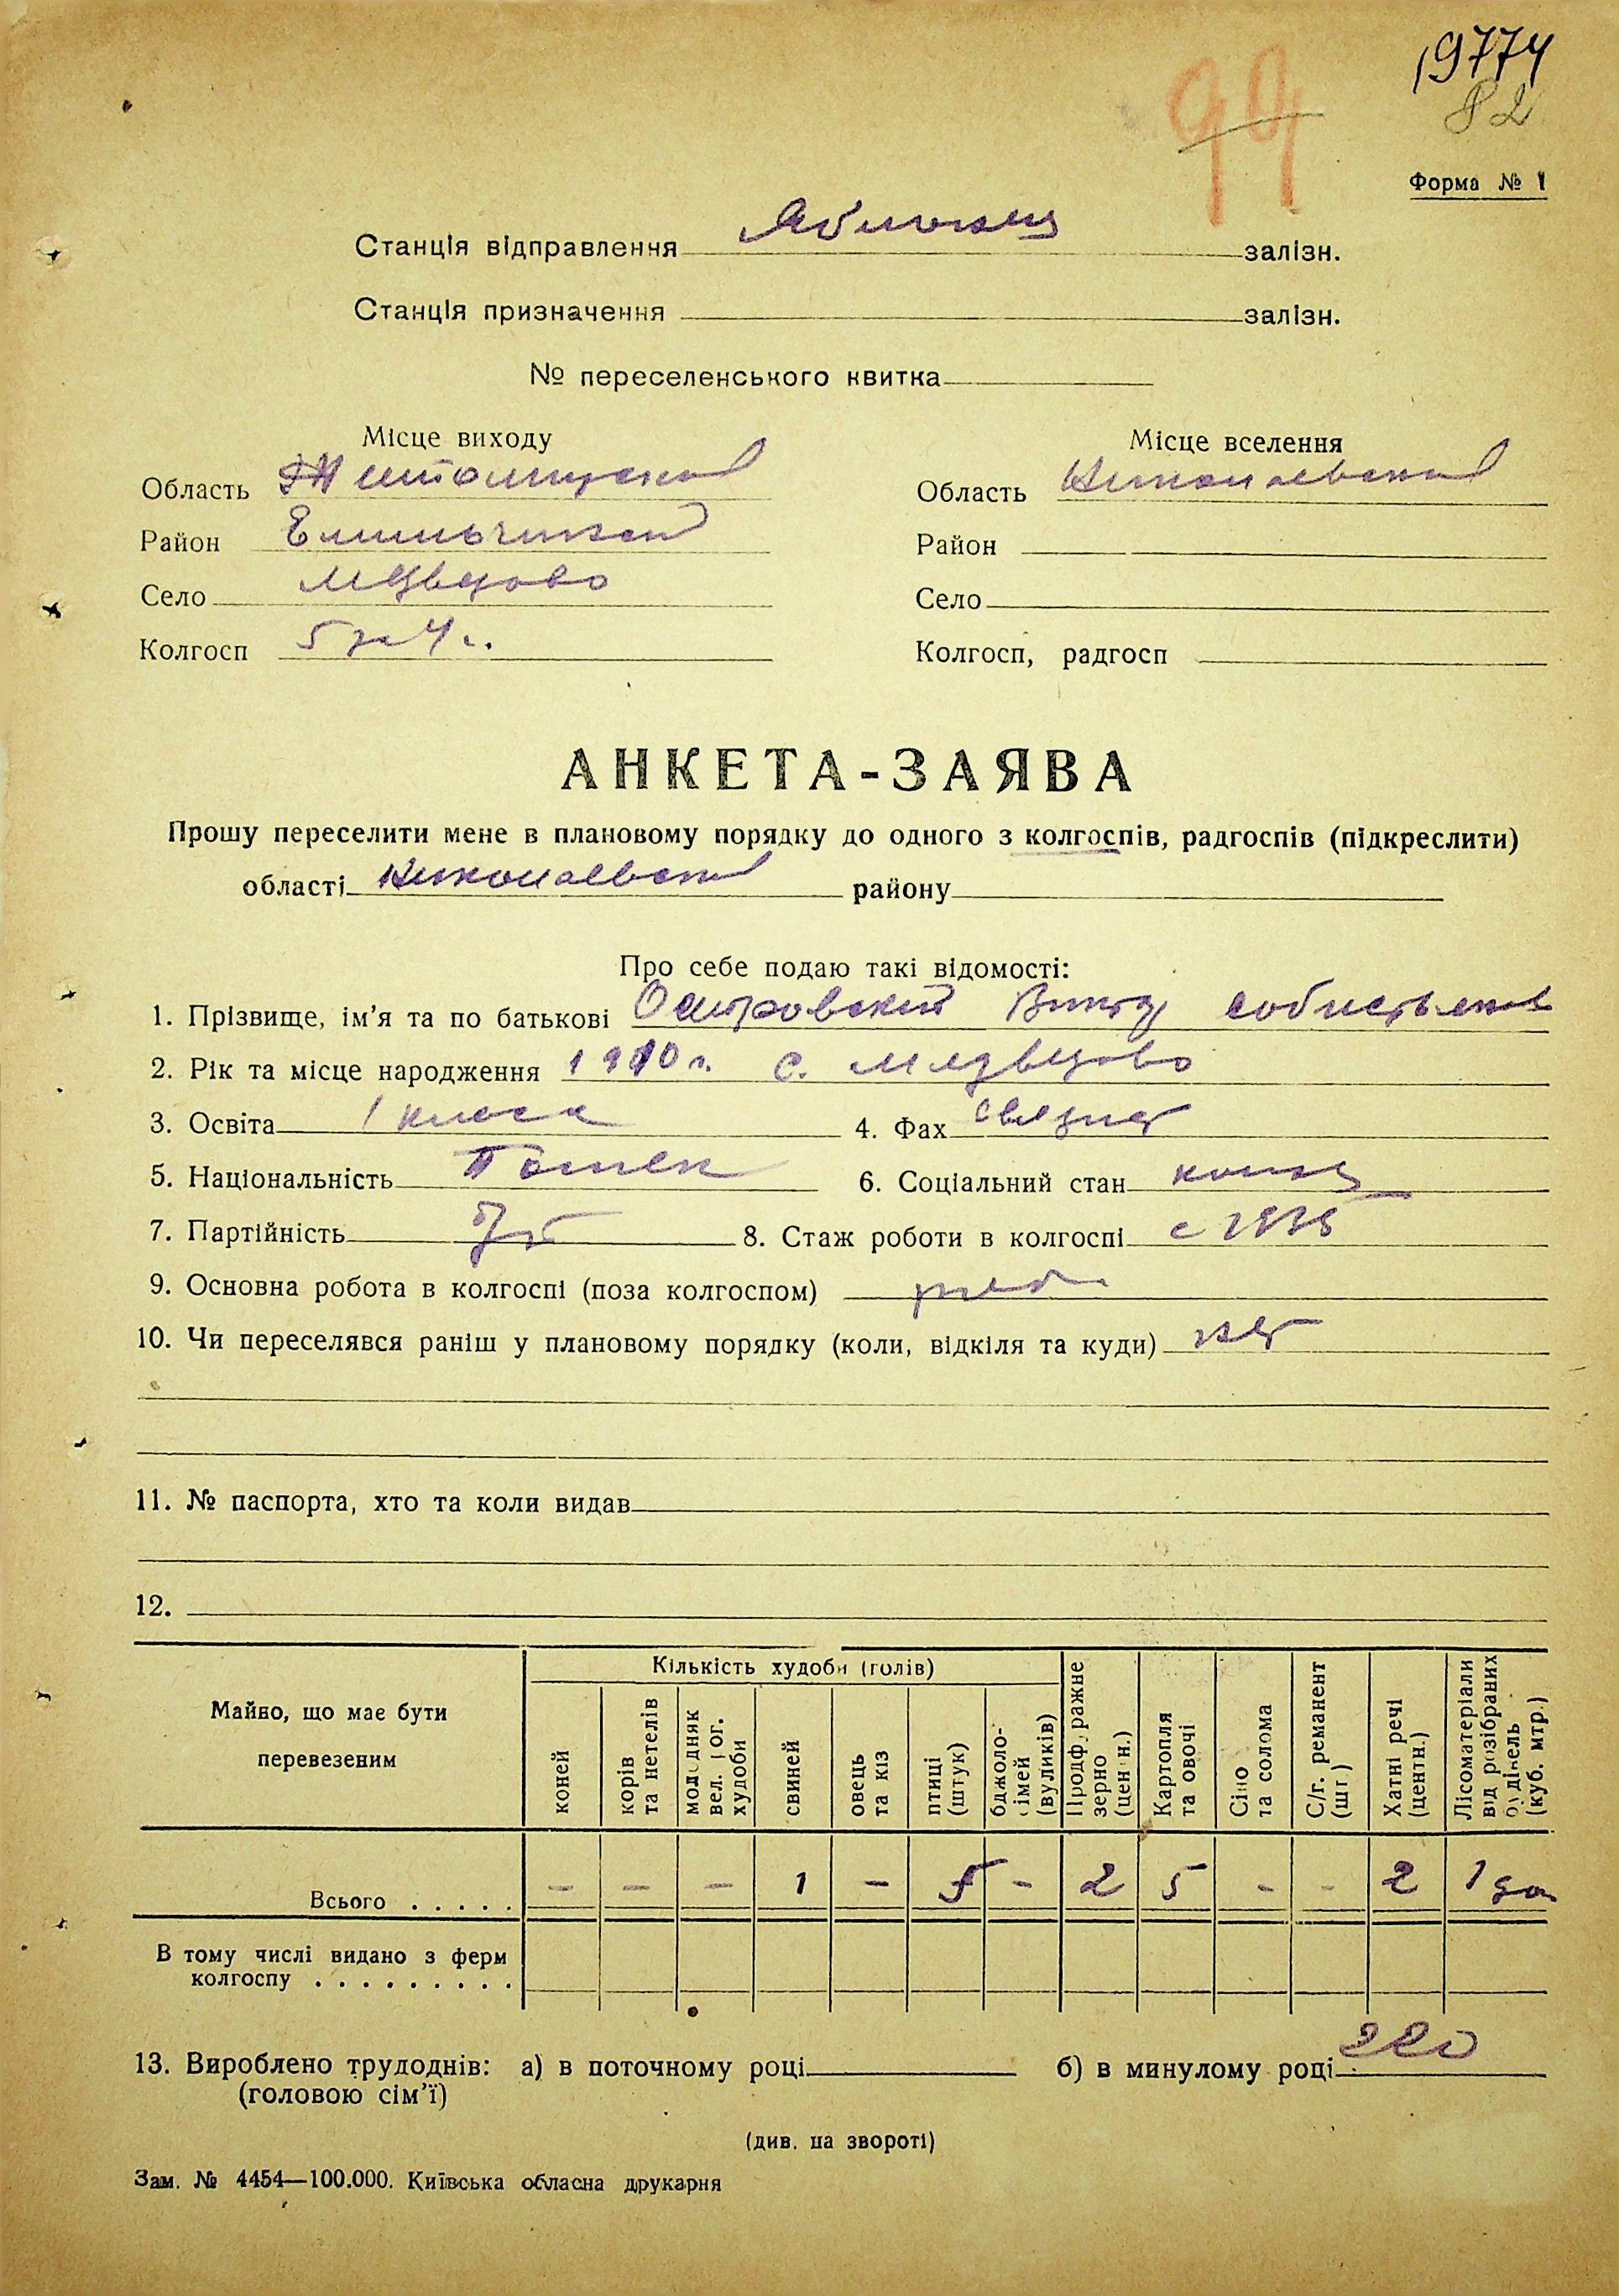 19774
82
99
Форма № 1
Станція відправлення Яблонец залізн.
Станція призначення залізн.
№ переселенського квитка
Місце виходу
Місце вселення
Область Житомирский
Область Николаевский
Район Емильчинский
Район
Село Медведово
Село
Колгосп 5 за 4 г.
Колгосп, радгосп
АНКЕТА-ЗАЯВА
Прошу переселити мене в плановому порядку до одного з колгоспів, радгоспів (підкреслити)
області Николаевский району
Про себе подаю такі відомості:
1. Прізвище, ім'я та по батькові Островский Виктор
2. Рік та місце народження 1910 г. с. Медведово
3. Освіта 1 класс 4. Фах
5. Національність Поляк 6. Соціальний стан колхоз
7. Партійність б/п 8. Стаж роботи в колгоспі с 1935
9. Основна робота в колгоспі (поза колгоспом) ряд
10. Чи переселявся раніш у плановому порядку (коли, відкіля та куди) нет
11. № паспорта, хто та коли видав
12.
Майно, що має бути перевезеним
Кількість худоби (голів)
коней
корів та нетелів
молодняк вел. рог. худоби
свиней
овець та кіз
птиці (штук)
бджоло-сімей (вуликів)
Продфуражне зерно (центн.)
Картопля та овочі
Сіно та солома
С/г. реманент (шт.)
Хатні речі (центн.)
Лісоматеріали від розібраних будівель (куб. мтр.)
Всього . . . . . – – – 1 – 5 – 2 5 - - 2 1 дом
В тому числі видано з ферм
колгоспу . . . . . . . . .
13. Вироблено трудоднів: а) в поточному році б) в минулому році 220
(головою сім'ї)
(див. на звороті)
Зам. № 4454—100.000. Київська обласна друкарня